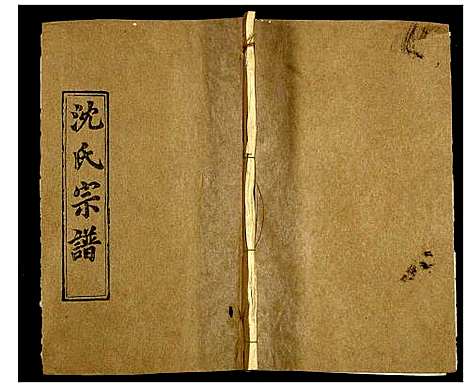 沈氏宗譜